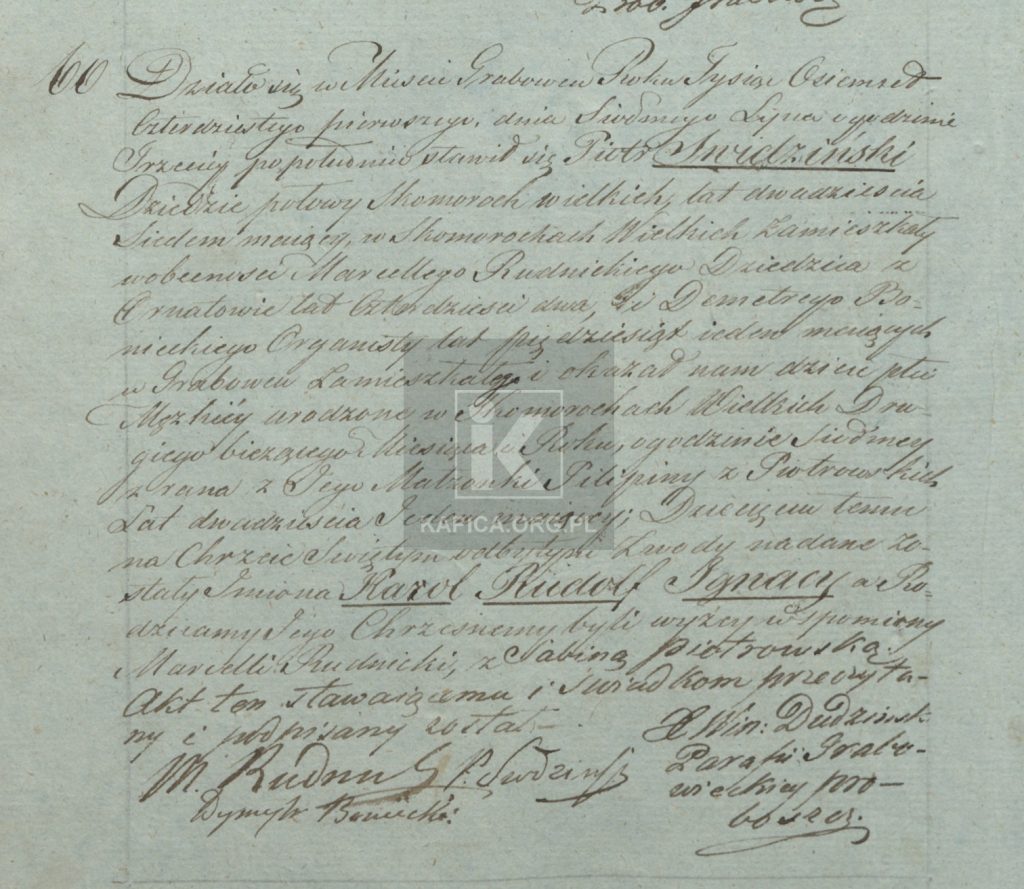 60 Działo się w Mieście Grabowcu Roku Tysiąc Osiemset
Czterdziestego pierwszego, dnia Siódmego Lipca o godzinie
Trzeciey popołudniu stawił się Piotr Swidziński
Dziedzic połowy Skomoroch wielkich, lat dwadzieścia
Siedem maiący, w Skomorochach Wielkich Zamieszkały
w obecności Marcellego Rudnickiego Dziedzica z
Ornatowic lat Czterdzieści dwa, i Demetrego Bo-
nieckiego Organisty lat pięćdziesiąt ieden maiących
w Grabowcu Zamieszkałego i okazał nam dziecie płci
Męzkiéy urodzone w Skomorochach Wielkich Dru-
giego bieżącego Miesiąca i Roku, o godzinie Siódmey
z rana z Jego Małżonki Filipiny z Piotrowskich
Lat dwadzieścia Jeden maiącey; Dziecięciu temu
na Chrzcie Swiętym odbytym z wody nadane zo-
stały Imiona Karol Rudolf Ignacy a Ro-
dzicamy Jego Chrzesnemy byli wyżey wspomiony
Marcelli Rudnicki, z Sabiną Piotrowską.
Akt ten stawaiącemu i swiadkom przeczyta-
ny i podpisany został
X Win: Dudzinsk
Parafii Grabo-
wieckiey pro-
boszcz.
M. Rudnicki P. Swidzinski
Dymytr Boniecki
KAPICA.ORG.PL